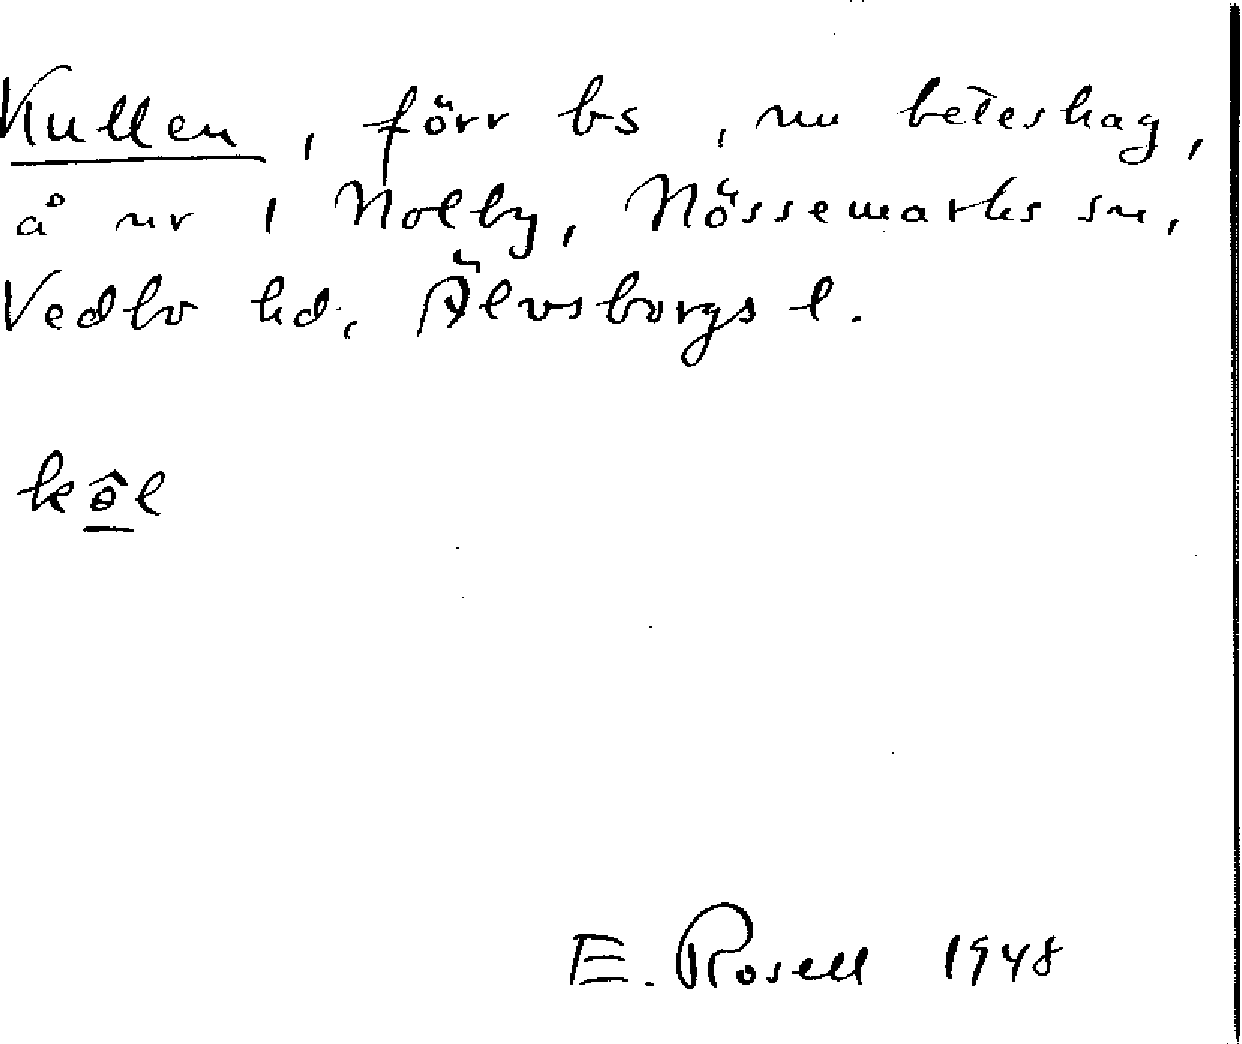 Kullen, förr bs, nu beteshag,
å nr 1 Nolby, Nössemarks sn,
Vedbo hd, Älvsborgs l.
kôl
E. Rosell 1948